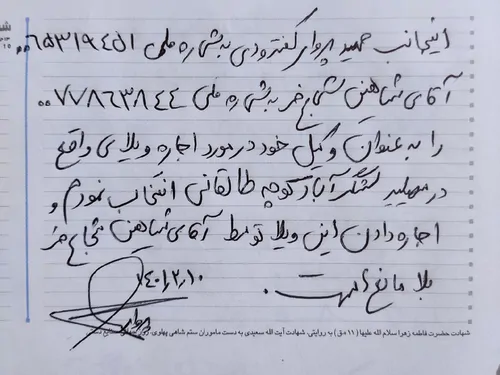 اینجانب حمید پروای گفترودی به شماره ملی ۰۰۶۵۳۱۹۴۵۱
آقای شاهین شجاع فر به شماره ملی ۰۰۷۷۸۶۳۸۴۴
را به عنوان وکیل خود در مورد اجاره ویلای واقع
در لشگرآباد کوچه طالقانی انتخاب نمودم و
اجاره دادن این ویلا توسط آقای شاهین شجاع فر
بلا مانع است.
۱۴۰۱/۲/۱۰
شهادت حضرت فاطمه زهرا سلام الله علیها (۱۱ ه‍ ق) به روایتی، شهادت آیت الله سعیدی به دست ماموران ستم شاهی پهلوی